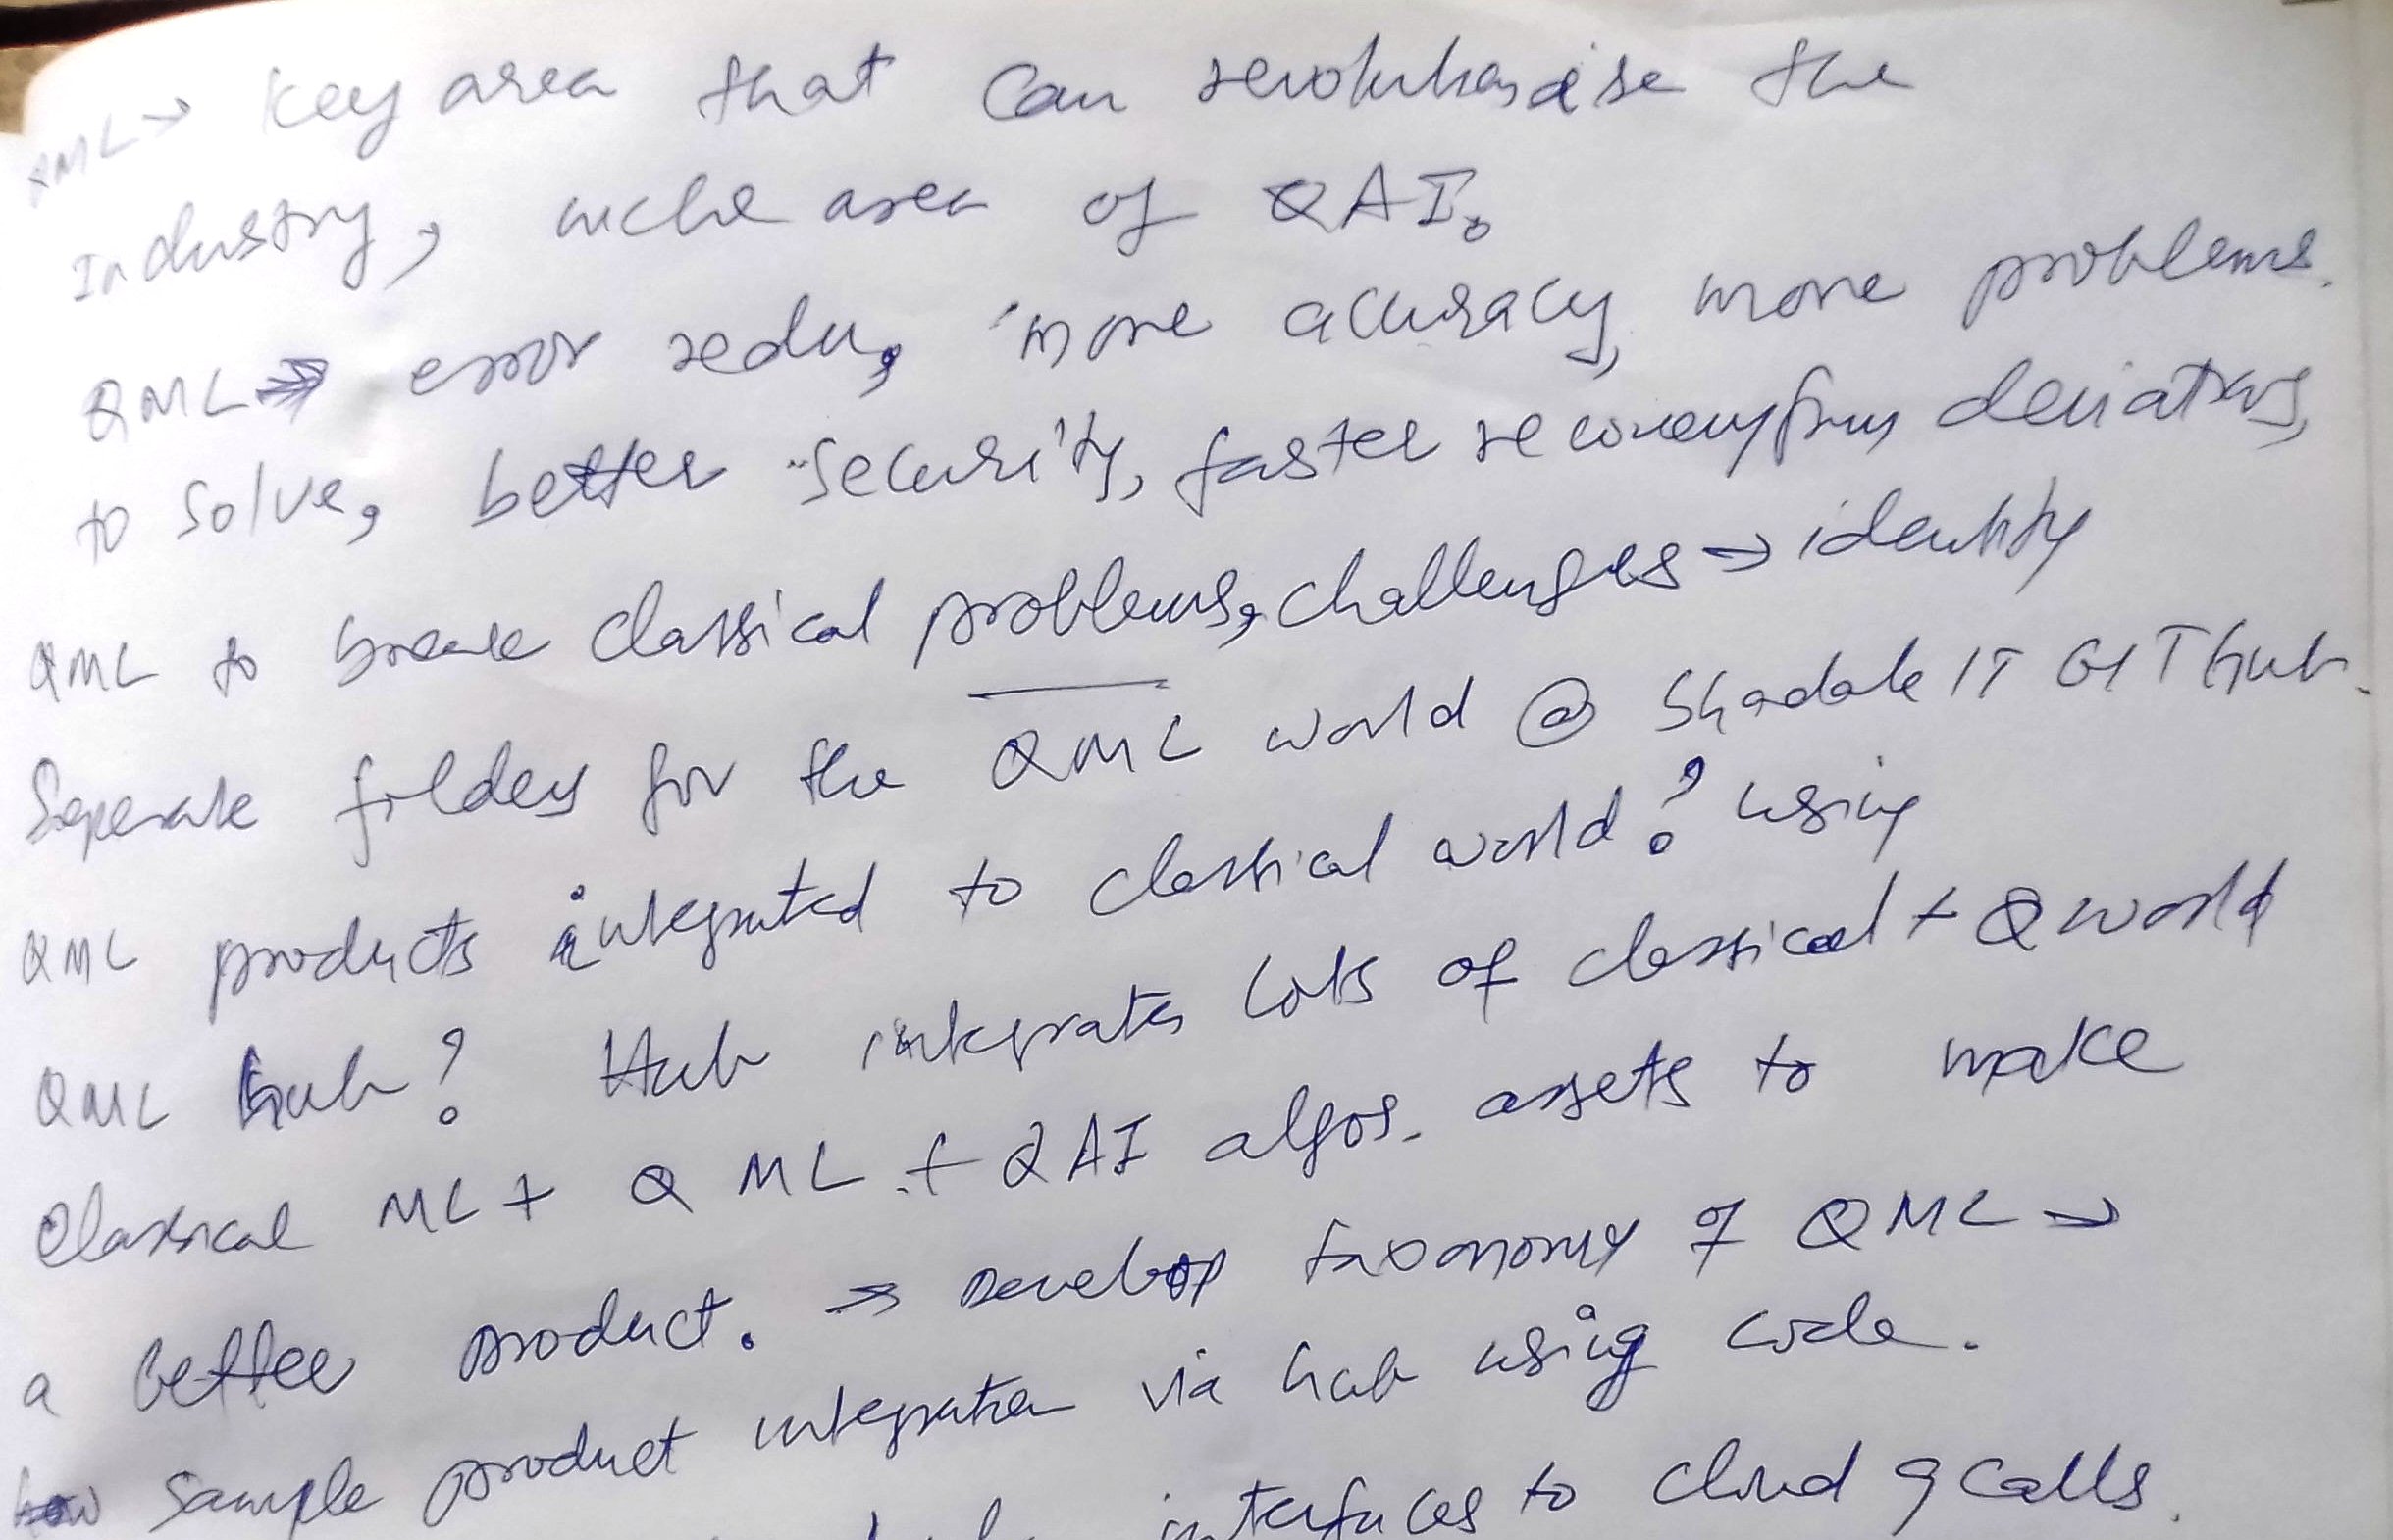 QML → Key area that can revolutionise the
Industry, niche area of QAI.
QML → error redu, more accuracy, more problems.
to solve, better security, faster recovery from deviations,
QML to break classical problems, challenges → identity
Seperate folders for the QML world @ Shadak IT GITHub.
QML products integrated to classical world? using
QML hub? Hub integrates lots of classical + Q world
Classical ML + Q ML + QAI algos. assets to make
a better product. → Develop taxonomy of QML →
how sample product integration via hub using code.
interfaces to cloud q calls.